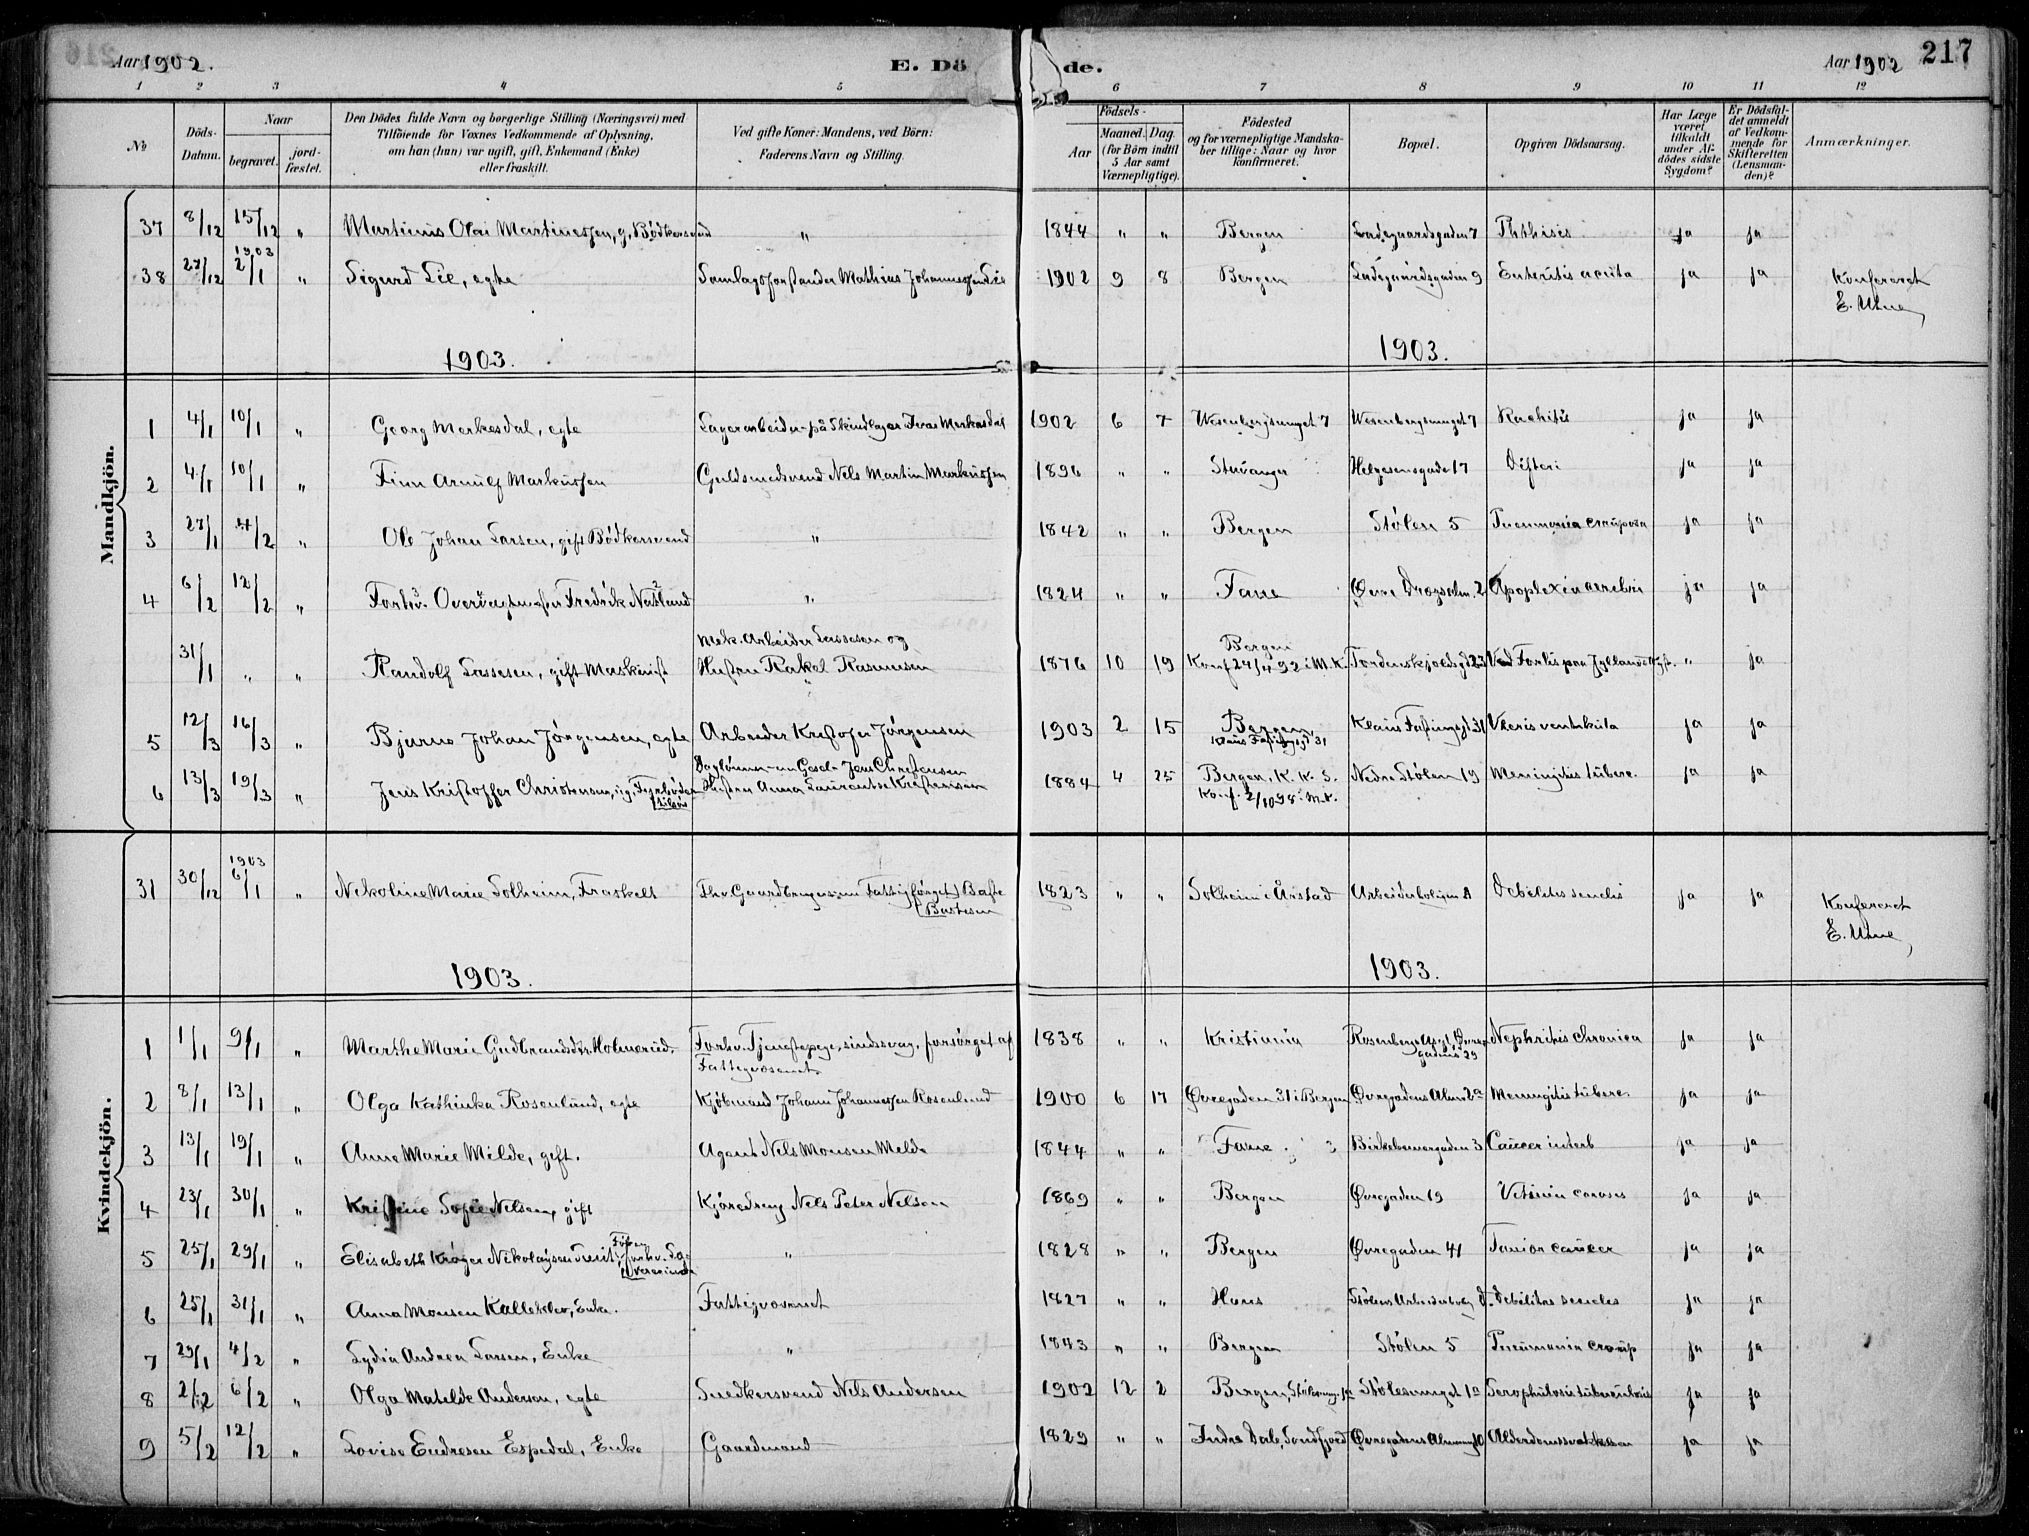 Aar 1902.
E. Dö de.
Aar 1902
217
1 2 3 4 5 6 7 8 9 10 11 12
№
Döds-Datum.
Naar
begravet.
jord-fæstet.
Den Dödes fulde Navn og borgerlige Stilling (Næringsvei) med
Tilföiende for Voxnes Vedkommende af Oplysning,
om han (hun) var ugift, gift, Enkemand (Enke)
eller fraskilt.
Ved gifte Koner: Mandens, ved Börn:
Faderens Navn og Stilling.
Födsels-
Aar
Maaned. Dag.
(for Börn indtil
5 Aar samt
Værnepligtige).
Födested
og for værnepligtige Mandska-
ber tillige: Naar og hvor
konfirmeret.
Bopæl.
Opgiven Dödsaarsag.
Har Læge
været
tilkaldt
under Af-
dödes sidste
Sygdom?
Er Dödsfal-
det anmeldt
af Vedkom-
mende for
Skifteretten
(Lensman-
den)?
Anmærkninger.
Mandkjön.
37 8/12 15/12 " Martinus Olai Martinessen, g. Bødkersvend " 1844 " " Bergen Ladegaardsgaden 7 Phthisis ja ja
1903
38 27/12 2/1 " Sigurd Lie, egte Samlagsforstander Mathias Johannessen Lie 1902 9 8 Bergen Ladegaardsgaden 9 Enteritis acuta ja ja Konfereret
E. Utne
1903. 1903.
1 4/1 10/1 " Georg Merkesdal, egte Lagerarbeider på Skindlager 1902 6 7 Wesenbergsmuget 7 Wesenbergsmuget 7 Rachitis ja ja
2 4/1 10/1 " Finn Arnulf Markussen Guldsmedsvend Nels Martin Markussen 1896 " " Stavanger Helgesensgade 17 Difteri ja ja
3 27/1 4/2 " Ole Johan Larsen, gift Bødkersvend " 1842 " " Bergen Stølen 5 Pneumonia crouposa ja ja
4 6/2 12/2 " Forhv. Overvagtmester Fredrik Natland " 1824 " " Fane Øvre Dragsalm. 2 Apoplexia cerebri ja ja
31/1 " " Randolf Lassesen, gift Maskinist Mek. Arbeider Lassesen og
Hustru Rakel Rasmussen 1876 10 19 Bergen
Konf 24/4 92 i M.K. Tordenskjoldsgd 23 Ved Forlis paa Jyllands Kyst. " ja
5 12/3 16/3 " Bjarne Johan Jørgensen, egte Arbeider Kristofer Jørgensen 1903 2 15 Bergen,
Klaus Fastingsgd 31 Klaus Fastingsgt 31 ja ja
6 13/3 19/3 " Jens Kristoffer Christensen, ug. Fyrbøder Jens Christensen
Hustru Anna Laurentse Kristensen 1884 4 25 Bergen, K. K. S.
Konf. 2/10 98 i M.K. Nedre Stølen 19 Meningitis tuberc. ja ja
Kvindekjön.
1903
31 30/12 6/1 " Nekoline Marie Solheim, Fraskelt Fhv. Gaardbruger
Bastesen 1823 " " Solheim i Årstad Arbeiderboligen A Debilitas senilis ja ja Konfereret
E. Utne
1903. 1903.
1 1/1 9/1 " Marthe Marie Gudbrandsdtr. Holmerud. Forhv. Tjenestepige, sindssvag, forsørget af
Fattigvæsenet 1838 " " Kristiania Nephritis chronica ja ja
2 8/1 13/1 " Olga Kathinka Rosenlund, egte Kjøbmand Johan Johannessen Rosenlund 1900 6 17 Øvregaden 31 i Bergen Øvregadens Alm 2a Meningitis tuberc. ja ja
3 13/1 19/1 " Anne Marie Milde, gift. Agent Nels Monsen Melde 1844 " " Fane Birkebeinergaden 3 Cancer ja ja
4 23/1 30/1 " Kristine Sofie Nelsen, gift Kjøredreng Nels Peter Nelsen 1869 " " Bergen Øvregaden 19 ja ja
5 25/1 29/1 " Elisabeth Krøger Nikolaysen " 1828 " " Bergen Øvregaden 41 cancer ja ja
6 25/1 31/1 " Anna Monsen Kalleklev, Enke. Fattigvæsenet 1827 " " Hans Stølens Arbeiderbolig D. Debilitas senilis ja ja
7 29/1 4/2 " Lydia Andrea Larsen, Enke " 1843 " " Bergen Stølen 5 Pneumonia croup ja ja
8 2/2 6/2 " Olga Matelde Andersen, egte Snedkersvend Nels Andersen 1902 12 2 Bergen, Stølesmug. 1a Stølesmuget 1a Scrophulosis tuberculosis ja ja
9 5/2 12/2 " Lovise Endresen Espedal, Enke Gaardmand 1829 " " Indre Dale, Søndfjord Øvregadens Almenning 10 Alderdomssvakhed ja ja